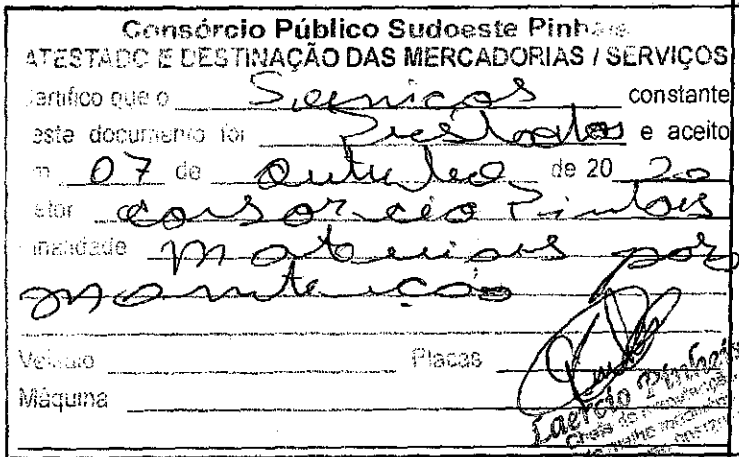 Consórcio Público Sudoeste Pinhais
ATESTADO E DESTINAÇÃO DAS MERCADORIAS / SERVIÇOS
Certifico que o Serviços constante
neste documento foi Prestados e aceito
em 07 de outubro de 20 20
Setor consorcio Pinhais
Finalidade Materiais por
manteição
Veículo Placas
Máquina
Laercio Pinheiro